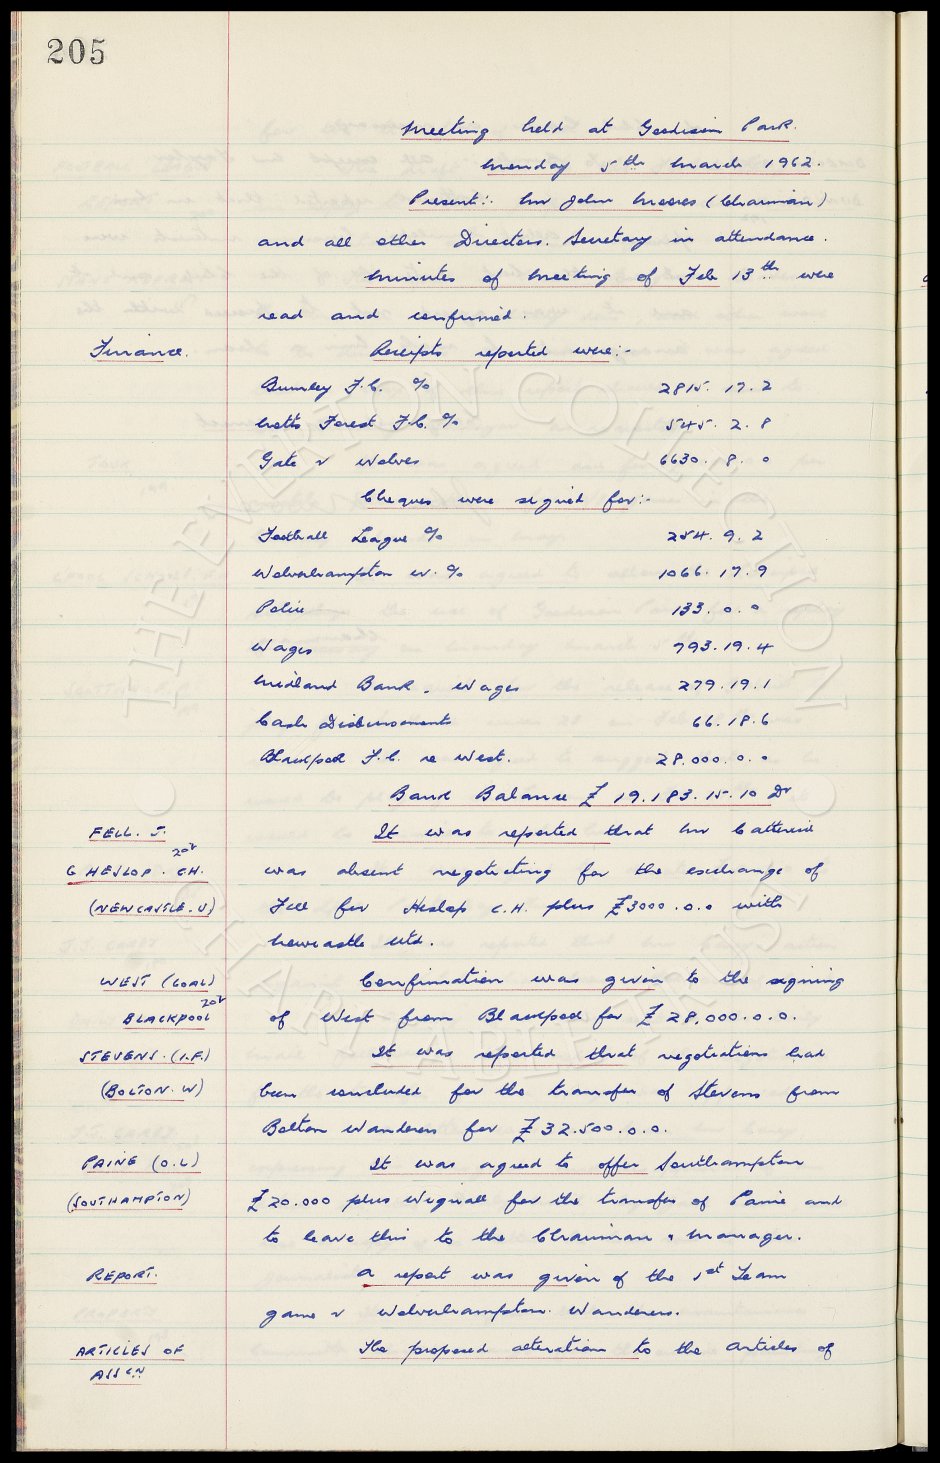 205
Meeting held at Goodison Park.
Monday 5th March 1962.
Present:- Mr John Moores (Chairman)
and all other Directors. Secretary in attendance.
Minutes of Meeting of Feb 13th were
read and confirmed.
Finance. Receipts reported were:-
Burnley F.C. % 2815. 17. 2
Notts Forest F.C. % 545. 2. 8
Gate v Wolves 6630. 8. 0
Cheques were signed for:-
Football League % 254. 9. 2
Wolverhampton W. % 1066. 17. 9
Police 133. 0. 0
Wages 793. 19. 4
Midland Bank. Wages 279. 19. 1
Cash Disbursements 66. 18. 6
Blackpool F.C. re West. 28.000. 0. 0
Bank Balance £ 19.183. 15. 10 Dr
FELL. J. It was reported that Mr Catterick
G HESLOP. C.H. was absent negotiating for the exchange of
(NEWCASTLE. U) Fell for Heslop C.H. plus £3000. 0. 0 with
Newcastle Utd.
WEST (GOAL) Confirmation was given to the signing
BLACKPOOL of West from Blackpool for £ 28,000. 0. 0.
STEVENS. (I.F.) It was reported that negotiations had
(BOLTON. W) been concluded for the transfer of Stevens from
Bolton Wanderers for £ 32.500. 0. 0.
PAINE (O.L) It was agreed to offer Southampton
(SOUTHAMPTON) £ 20.000 plus Wignall for the transfer of Paine and
to leave this to the Chairman & Manager.
REPORT. A report was given of the 1st Team
game v Wolverhampton Wanderers.
ARTICLES OF The proposed alteration to the Articles of
ASSCN
THE EVERTON COLLECTION
CHARITABLE TRUST